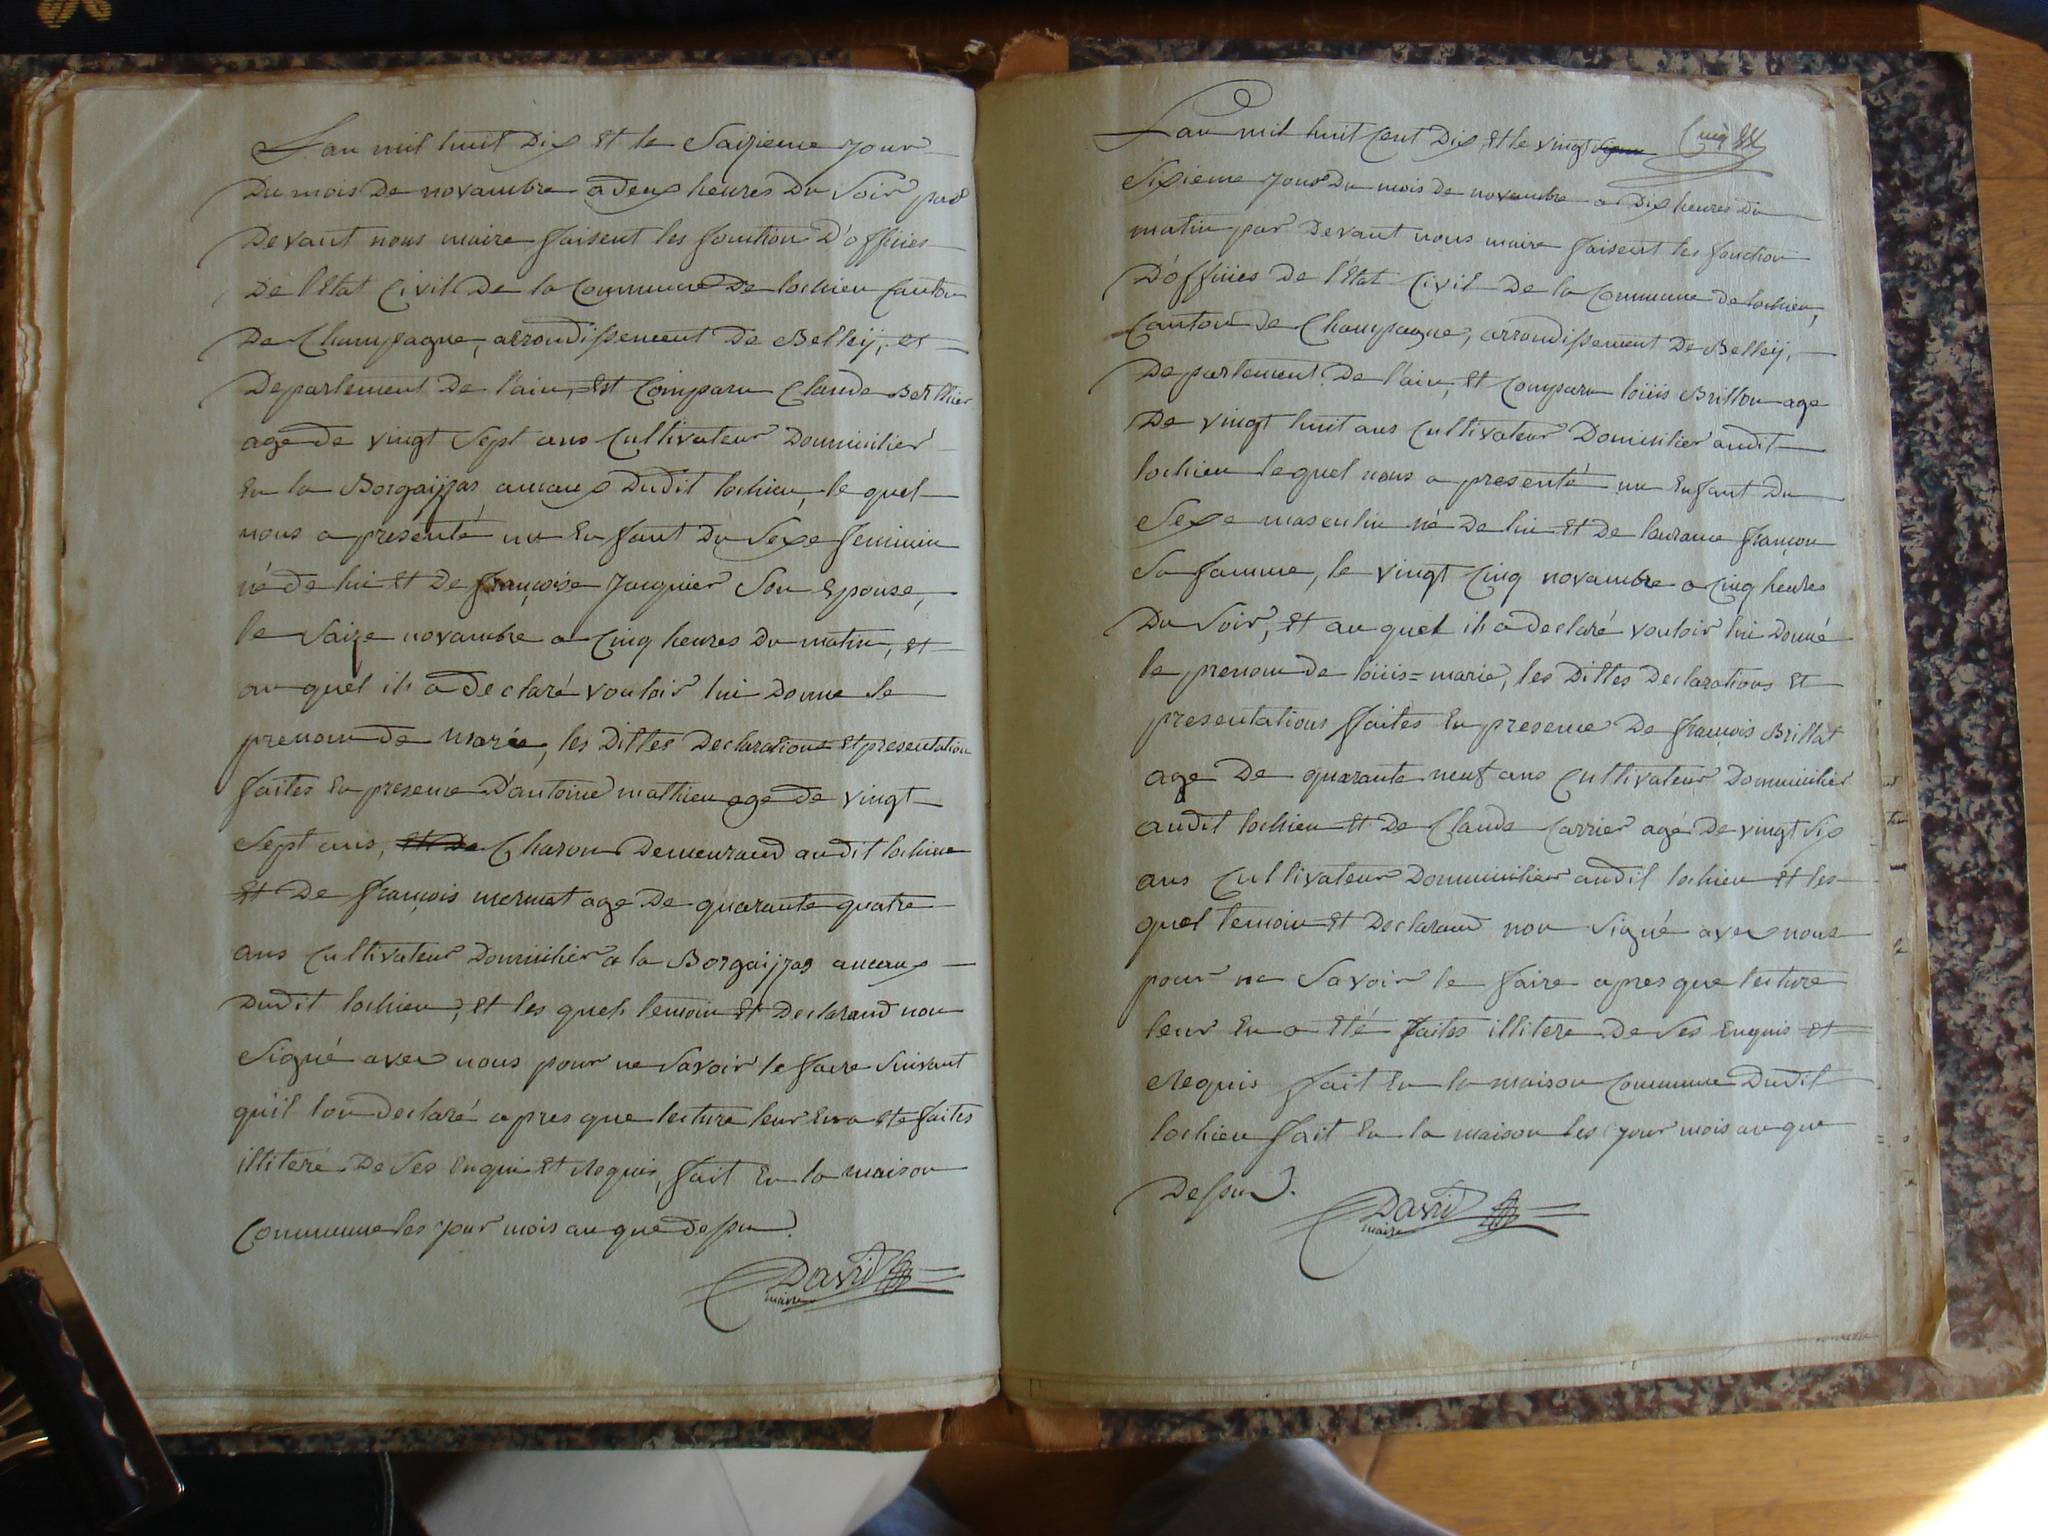 L'an mil huit Dix et le Saizieme jour
Du mois de novambre a deux heures Du Soir par
Devant nous maire faisent les fonction D'officies
De l'Etat Civil De la Commune De lochieu canton
De Champagne, arrondissement De Belleÿ, et
Departement De l'ain, Est Comparu Claude Berthier
age De vingt Sept ans Cultivateur Domicilier
En la Borgaijras aucaux Dudit lochieu, le quel
nous a presenté un Enfant Du Sexe feminin
né de lui et De françoise Jaquier Son Epouse,
le Saize novambre a Cinq heures Du matin, et
au quel il a declaré vouloir lui Donne le
prenom De marie, les Dittes Declarations et presentation
faites En presence D'antoine mathieu age De vingt
Sept ans, et De Charon Demeurand audit lochieu
Et De françois mermet age De quarante quatre
ans Cultivateur Domicilier a la Borgaijras aucaux
Dudit lochieu, et les quels temoin et Declarand non
Signé avec nous pour ne Savoir le faire Suivant
qu'il lon declaré apres que lecture leur En a Eté faites
illitere De Ses Enqui et Requis, fait En la maison
Commune les jour mois an que Dessu
David
maire
L'an mil huit Cent Dix et le vingt
Cinq
Sixieme jour Du mois De novambre a Dix heures Du
matin par Devant nous maire faisent les fonction
D'officies De l'Etat Civil De la Commune De lochieu,
Canton De Champagne, arrondissement De Belleÿ,
Departement De l'ain, et Comparu loüis Brillon age
De vingt huit ans Cultivateur Domicilier audit
lochieu le quel nous a presenté un Enfant Du
Sexe masculin né De lui et De lauranse françon
Sa famme, le vingt Cinq novambre a Cinq heures
Du Soir, et au quel il a declaré vouloir lui Donné
le prenom De loüis=marie, les Dittes Declarations et
presentations faites En presence De françois Brillat
age De quarante neuf ans Cultivateur Domicilier
audit lochieu et De Claude Carrier agé De vingt Six
ans Cultivateur Domicilier audit lochieu et les
quel temoin et Declarand non Signé avec nous
pour ne Savoir le faire apres que lecture
leur En a Eté faites illitere De Ses Enquis et
Requis fait En la maison Commune Dudit
lochieu fait En la maison les jour mois an que
Dessu
David
maire